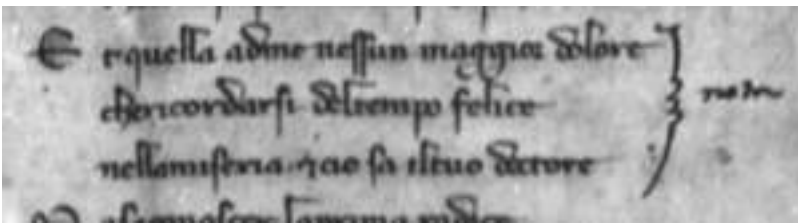 E t quella a me nessun maggior dolore
che ricordarsi del tempo felice
nella miseria ⁊ cio sa il tuo doctore